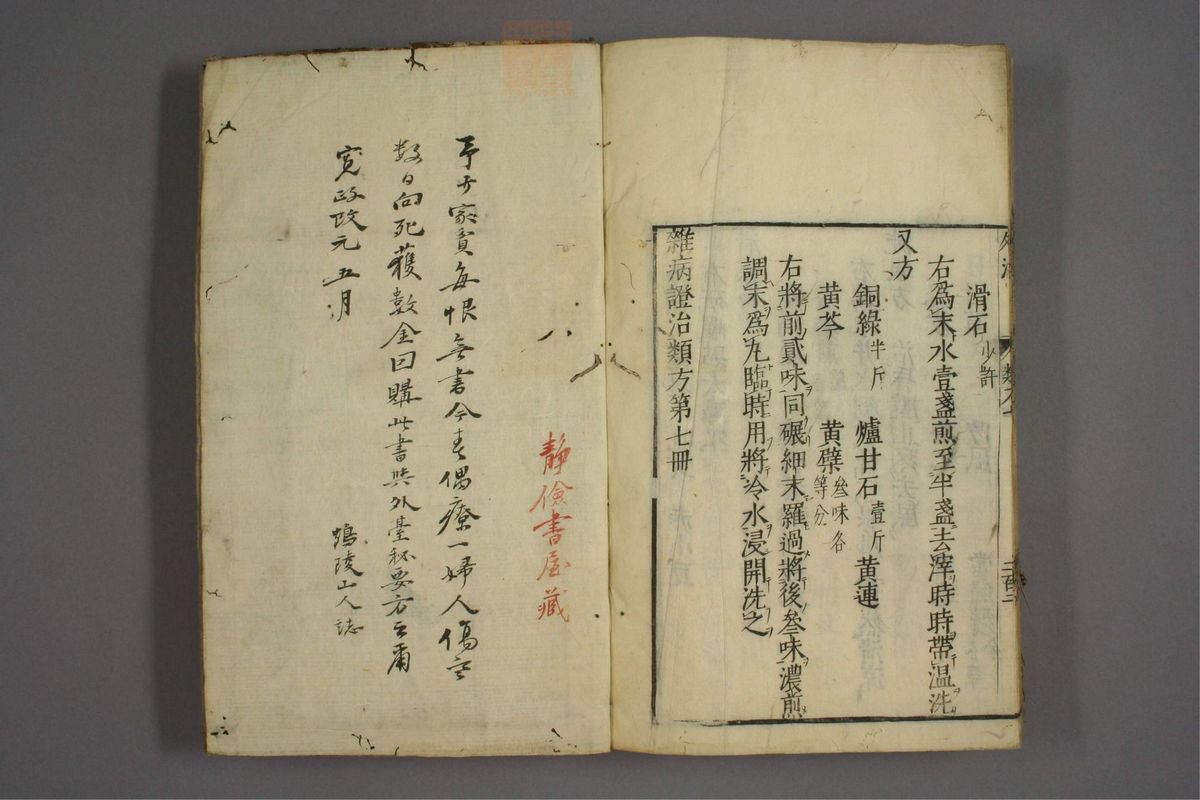 滑石少許
右為末水壹盞煎至半盞去滓時時帶温洗
又方
銅綠半斤 爐甘石壹斤 黄連
黄芩 黄蘗叄味各等分
右將前貳味同碾細末羅過將後叄味濃煎
調末為丸臨時用將冷水浸開洗之
雜病證治類方第七冊
靜儉書屋藏
予家貧每恨無書今春偶療一婦人傷寒
数日向死獲數金回購此書與外臺秘要方云爾
寛政改元 五月
陵山人誌